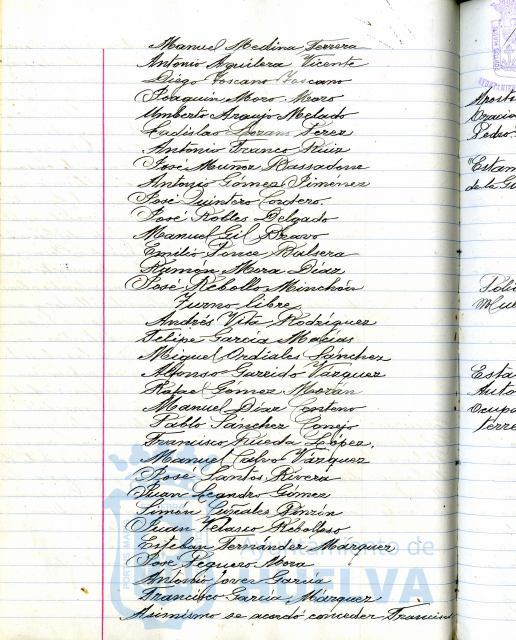 Manuel Medina Ferrera
Antonio Aguilera Vicente
Diego Toscano Toscano
Joaquin Moro Moro
Umberto Araujo Melado
Ladislao Lozano Perez
Antonio Franco Ruiz
José Muñoz Bassadone
Antonio Gómez Jimenez
José Quintero Cordero
José Robles Delgado
Manuel Gil Bravo
Emilio Ponce Balsera
Ramón Mora Diaz
José Rebollo Minchón
Turno libre
Andrés Vita Rodriguez
Felipe Garcia Macias
Miguel Ordiales Sánchez
Alfonso Garrido Vázquez
Rafael Gómez Morán
Manuel Diaz Centeno
Pablo Sánchez Conejo
Francisco Rueda López
Manuel Calvo Vázquez
José Santos Rivera
Juan Leandro Gómez
Simón González Pinzón
Juan Velasco Rebolloso
Esteban Fernández Márquez
José Peguero Mora
Antonio Jover Garcia
Francisco Garcia Márquez
Asimismo se acordó conceder Francisc
Pedro
Estam
de la Gu
Esta
Auto
Ocupa
terre
Ayuntamiento de
HUELVA